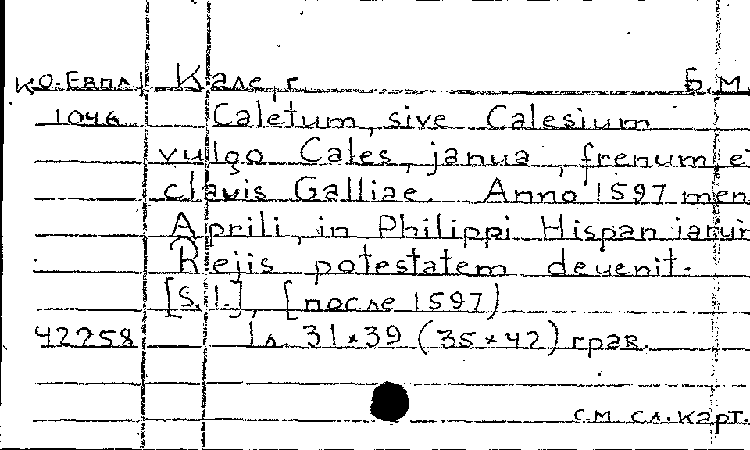 КО.Евпл Кале, г. Б.М.
1046 Caletum, sive Calesium
vulgo Cales, janua, frenum et
clavis Galliae. Anno 1597 men
Aprili, in Philippi Hispaniarum
Rejis potestatem devenit.
[S.l.], [после 1597)
42258 1 л. 31×39 (35×42) грав.
см. сл. карт.